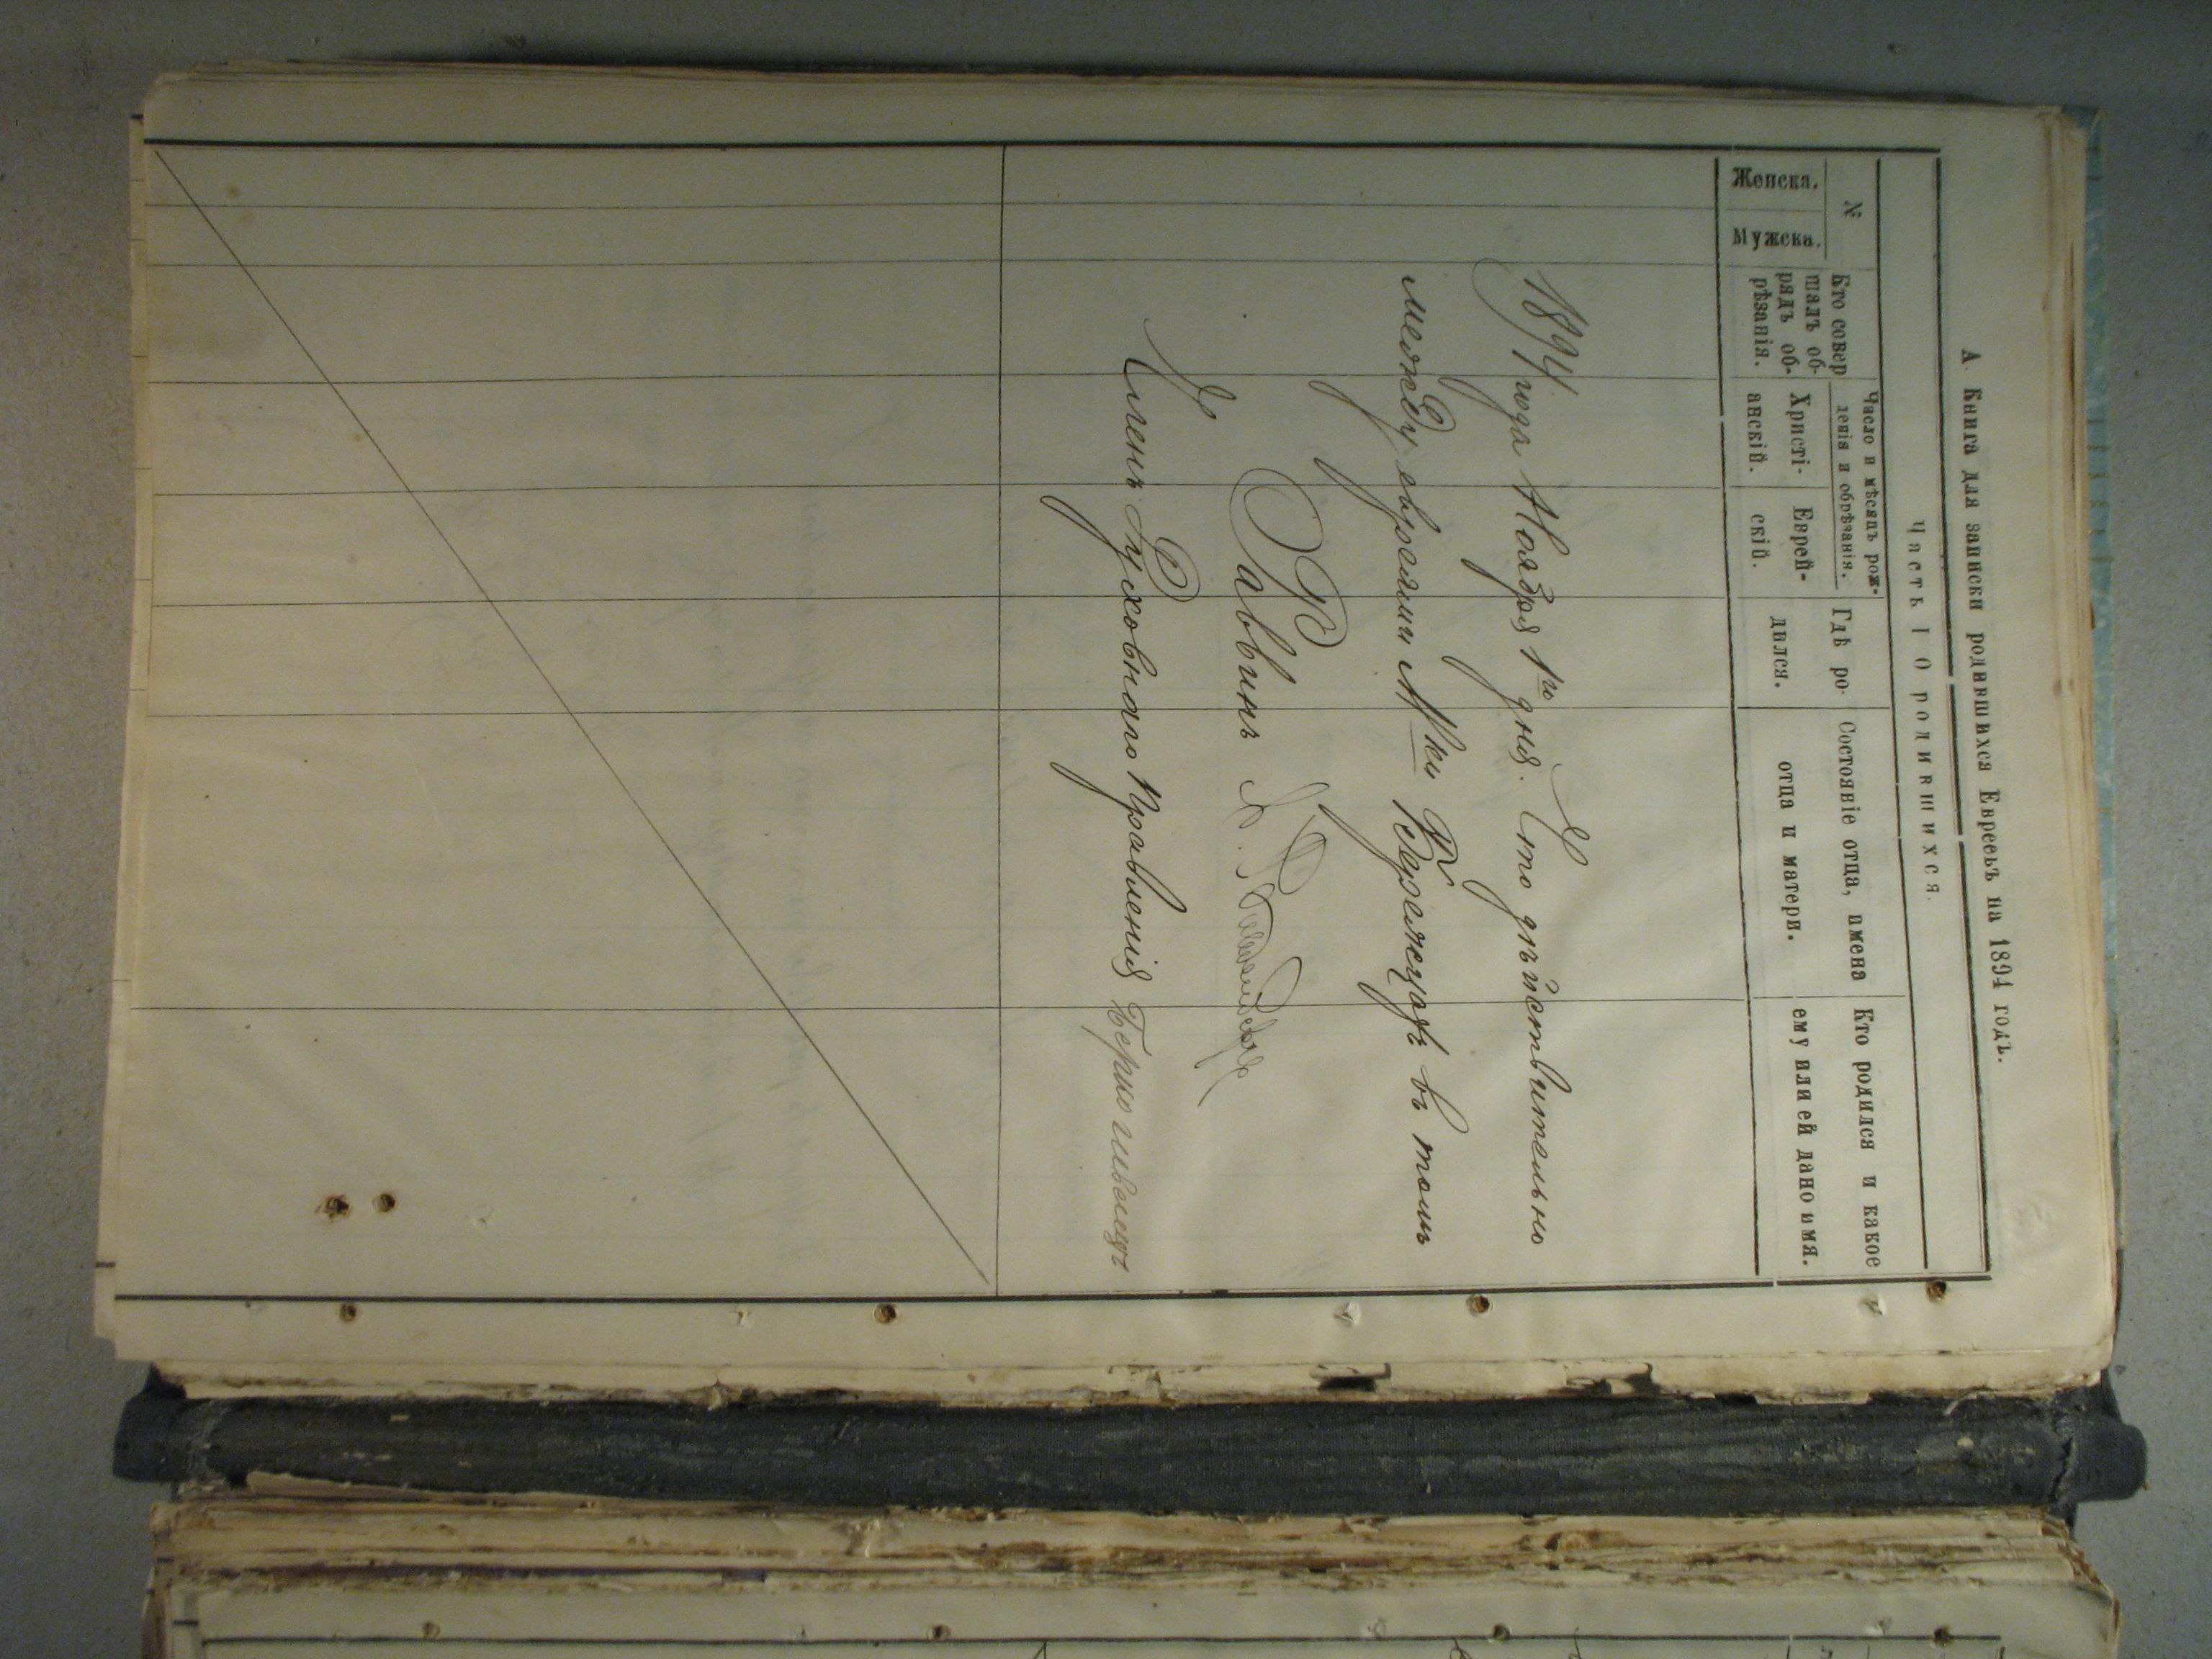 А. Книга для записки родившихся Евреевъ на 1894 годъ.
Часть I О родившихся.
№
Женска.
Мужска.
Кто совер
шалъ об-
рядъ об-
рѣзанія.
Число и мѣсяцъ рож-
денія и обрѣзанія.
Христі-
анскій.
Еврей-
скій.
Гдѣ ро-
дился.
Состояніе отца, имена
отца и матери.
Кто родился и какое
ему или ей дано имя.
1894 года Ноября 1го дня. Что дѣйствительно
между евреями М-ка Бережцахъ въ томъ
Раввинъ
Членъ Духовнаго Правленія